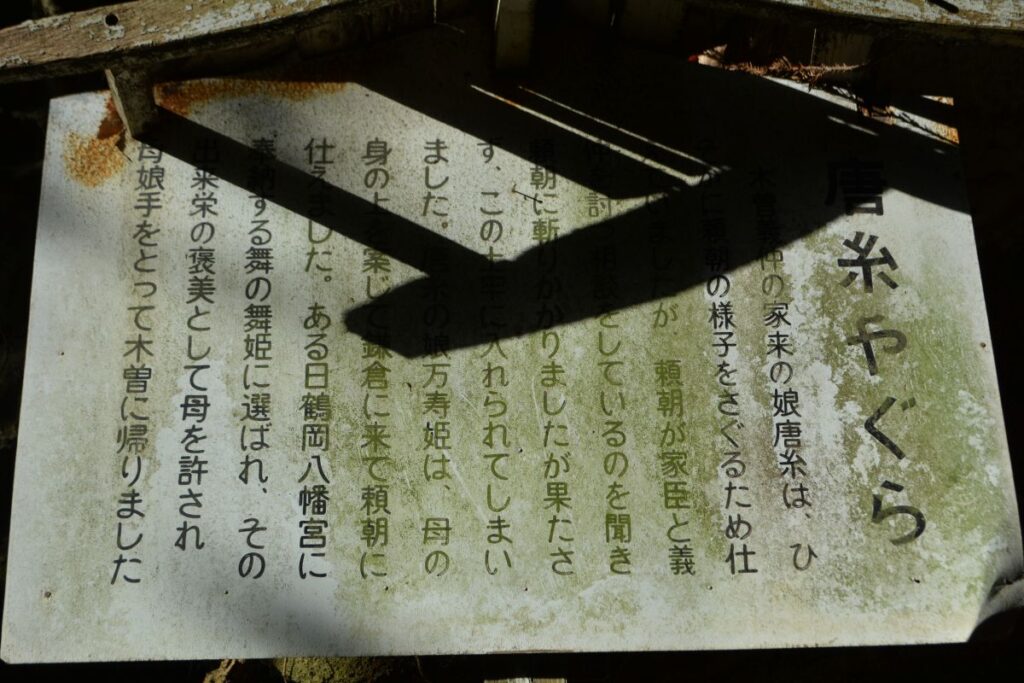 唐糸やぐら
木曽義仲の家来の娘唐糸は、ひ
そかに頼朝の様子をさぐるため仕
いましたが、頼朝が家臣と義
仲を討つ相談をしているのを聞き
頼朝に斬りかかりましたが果たさ
ず、この土牢に入れられてしまい
ました。唐糸の娘万寿姫は、母の
身の上を案じて鎌倉に来て頼朝に
仕えました。ある日鶴岡八幡宮に
奉納する舞の舞姫に選ばれ、その
出来栄の褒美として母を許され
母娘手をとって木曽に帰りました